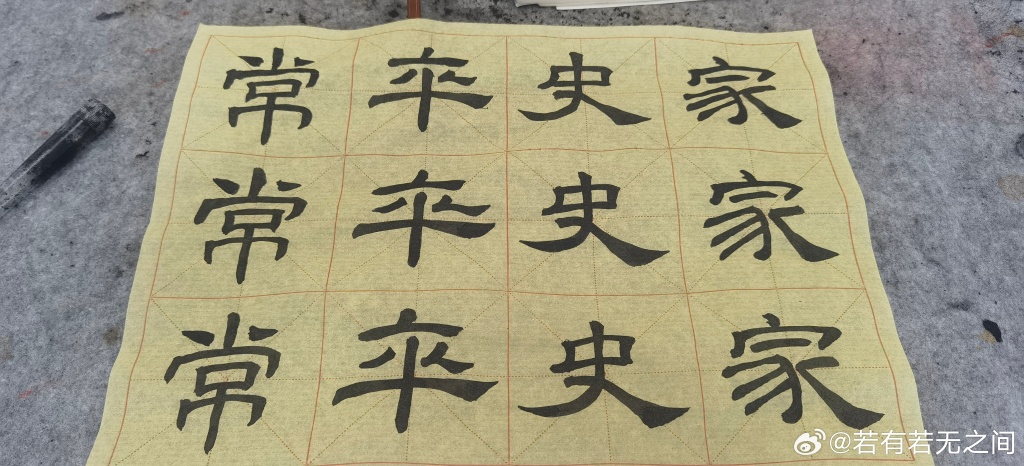 常卒史家
常卒史家
常卒史家
@若有若无之间